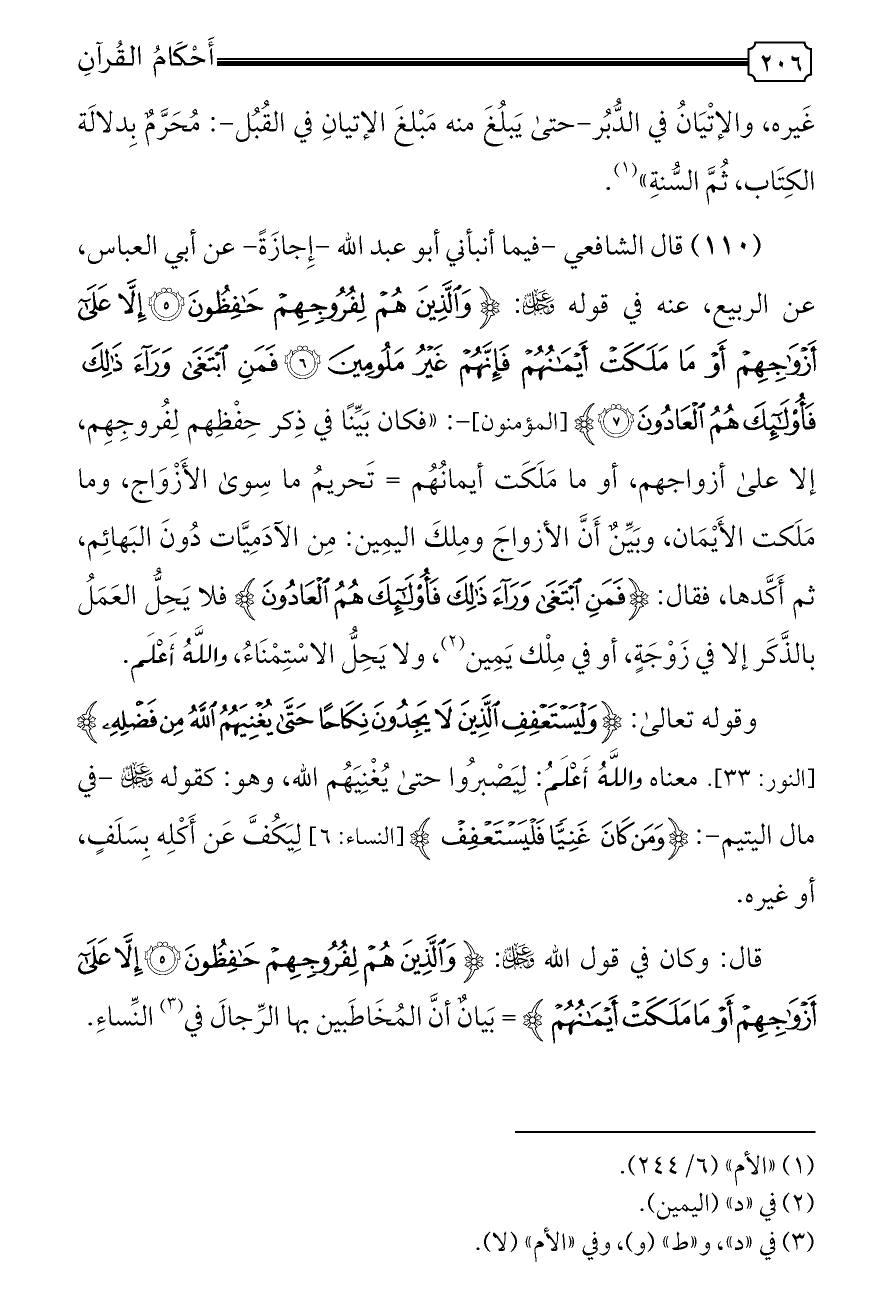 ٢٠٦ أَحْكَامُ القُرآنِ
غَيره، والإتْيَانُ في الدُّبُر -حتىٰ يَبلُغَ منه مَبْلغَ الإتيانِ في القُبُل-: مُحَرَّمٌ بِدلالَة
الكِتَاب، ثُمَّ السُّنةِ»(١).
(١١٠) قال الشافعي -فيما أنبأني أبو عبد الله -إِجازَةً- عن أبي العباس،
عن الربيع، عنه في قوله ﷿: ﴿وَٱلَّذِينَ هُمۡ لِفُرُوجِهِمۡ حَٰفِظُونَ ٥ إِلَّا عَلَىٰٓ
أَزۡوَٰجِهِمۡ أَوۡ مَا مَلَكَتۡ أَيۡمَٰنُهُمۡ فَإِنَّهُمۡ غَيۡرُ مَلُومِينَ ٦ فَمَنِ ٱبۡتَغَىٰ وَرَآءَ ذَٰلِكَ
فَأُوْلَٰٓئِكَ هُمُ ٱلۡعَادُونَ ٧﴾ [المؤمنون]-: «فكان بَيِّنًا في ذِكر حِفْظِهم لِفُروجِهِم،
إلا علىٰ أزواجهم، أو ما مَلَكَت أيمانُهُم = تَحريمُ ما سِوىٰ الأَزْوَاج، وما
مَلَكت الأَيْمَان، وبَيِّنٌ أَنَّ الأزواجَ ومِلكَ اليمِين: مِن الآدَمِيَّات دُونَ البَهائِم،
ثم أَكَّدها، فقال: ﴿فَمَنِ ٱبۡتَغَىٰ وَرَآءَ ذَٰلِكَ فَأُوْلَٰٓئِكَ هُمُ ٱلۡعَادُونَ﴾ فلا يَحِلُّ العَمَلُ
بالذَّكَر إلا في زَوْجَةٍ، أو في مِلْك يَمِين(٢)، ولا يَحِلُّ الاسْتِمْنَاءُ، واللهُ أَعْلَم.
وقوله تعالىٰ: ﴿وَلۡيَسۡتَعۡفِفِ ٱلَّذِينَ لَا يَجِدُونَ نِكَاحًا حَتَّىٰ يُغۡنِيَهُمُ ٱللَّهُ مِن فَضۡلِهِۦ﴾
[النور: ٣٣]. معناه واللهُ أَعْلَمُ: لِيَصْبرُوا حتىٰ يُغْنِيَهُم الله، وهو: كقوله ﷿ -في
مال اليتيم-: ﴿وَمَن كَانَ غَنِيّٗا فَلۡيَسۡتَعۡفِفۡ﴾ [النساء: ٦] لِيَكُفَّ عَن أَكْلِه بِسَلَفٍ،
أو غيره.
قال: وكان في قول الله ﷿: ﴿وَٱلَّذِينَ هُمۡ لِفُرُوجِهِمۡ حَٰفِظُونَ ٥ إِلَّا عَلَىٰٓ
أَزۡوَٰجِهِمۡ أَوۡ مَا مَلَكَتۡ أَيۡمَٰنُهُمۡ﴾ = بَيانٌ أنَّ المُخَاطَبين بها الرِّجالَ في(٣) النِّساءِ.
(١) «الأم» (٦/ ٢٤٤).
(٢) في «د» (اليمين).
(٣) في «د»، و«ط» (و)، وفي «الأم» (لا).